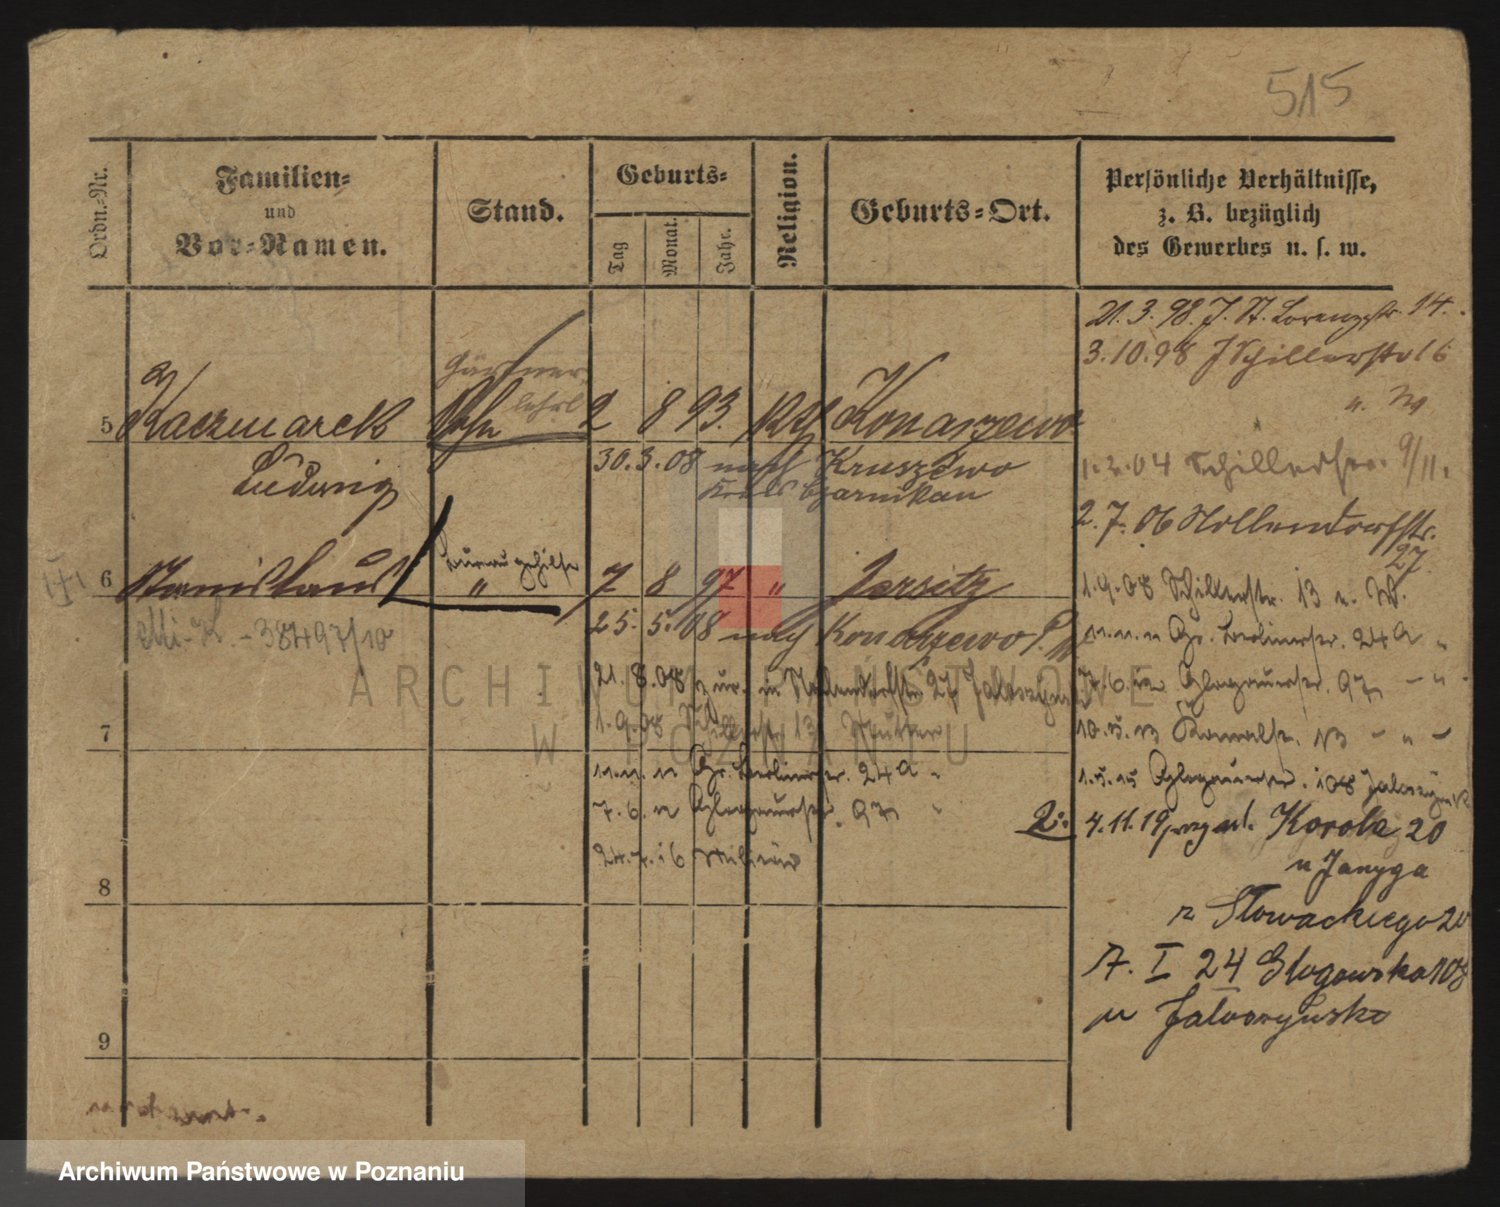 515
Ordn.-Nr.
Familien-
und
Vor-Namen.
Stand.
Geburts-
Tag
Monat.
Jahr.
Religion.
Geburts-Ort.
Persönliche Verhältnisse,
z. B. bezüglich
des Gewerbes u. s. w.
21.3.98. J. St. Lorenzstr. 14.
3.10.98 J Schillerstr 16
Gärtner
lehrl
5 Kaczmarek Sohn 2 8 93. Kth Konarzewo
Ludwig
30.3.08 nach Kruszewo
Kreis Czarnikau
1.2.04 Schillerstr. 9/11.
2.7.06 Nollendorfstr.
27
6 Stanislaus Bureaugehilfe " 7 8 97 " Jersitz
25.5.08 nach Konarzewo
21.8.08 zur. in Nollendorfstr 27
1.9.08 Schillerstr. 13 Mutter
11.11.11 Gr. Berlinerstr. 24a "
7.6.12 Glogauerstr. 97 "
24.7.16 Militär
1.9.08 Schillerstr. 13 u. W.
11.11.11 Gr. Berlinerstr. 24a "
7.6.12 Glogauerstr. 97 - " -
10.5.13 13 - " -
1.5.15 Glogauerstr. 108
2: 4.11.19 ul. 20
u Janyga
Słowackiego 20
7. I 24 Glogowska 108
u
7
8
9
ARCHIWUM PAŃSTWOWE
W POZNANIU
Archiwum Państwowe w Poznaniu